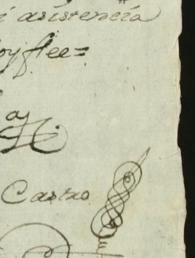 i asistencia
oyflee=
Castro